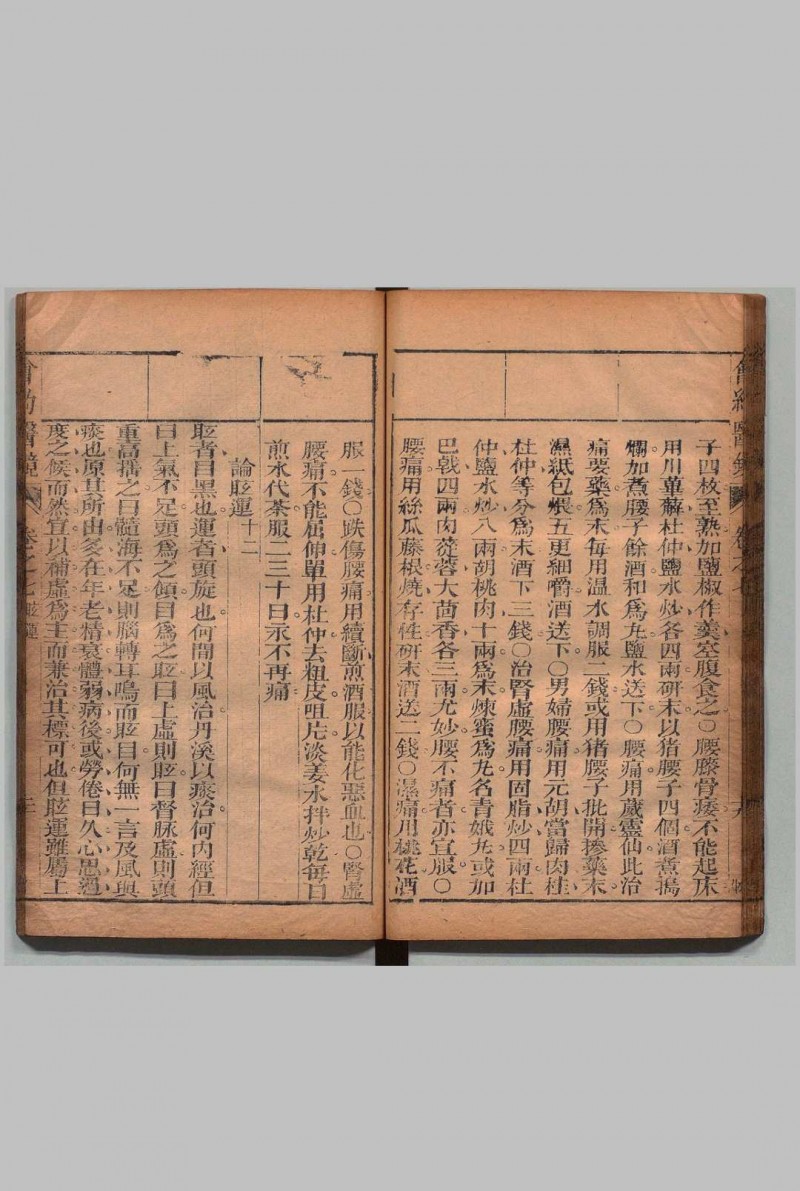 子四枚至熟加鹽椒作羮空腹食之○腰膝骨痿不能起床
用川萆薢杜仲鹽水炒各四兩研末以猪腰子四個酒煮搗
爛加煮腰子餘酒和為丸鹽水送下○腰痛用葳靈仙此治
痛要藥為末每用温水調服二錢或用猪腰子批開摻藥末
濕紙包煨五更細嚼酒送下○男婦腰痛用元胡當歸肉桂
杜仲等分為末酒下三錢○治腎虛腰痛用固脂炒四兩杜
仲鹽水炒八兩胡桃肉十兩為末煉蜜為丸名青娥丸或加
巴戟四兩肉蓯蓉大茴香各三兩尤妙腰不痛者亦宜服○
腰痛用絲瓜藤根燒存性研末酒送二錢○濕痛用桃花酒
會約醫鏡
卷之七
服一錢○跌傷腰痛用續斷煎酒服以能化惡血也○腎虛
腰痛不能屈伸單用杜仲去粗皮咀片淡姜水拌炒乾每日
煎水代茶服二三十日永不再痛
論眩運十二
眩者目黑也運者頭旋也何間以風治丹溪以痰治何内經但
曰上氣不足頭為之傾目為之眩曰上虛則眩曰督脉虛則頭
重高搖之曰髓海不足則腦轉耳鳴而眩目何無一言及風與
痰也原其所由多在年老精衰體弱病後或勞倦日久心思過
度之候而然宜以補虛為主而兼治其標可也但眩運雖屬上
會約醫鏡
卷之七 眩運